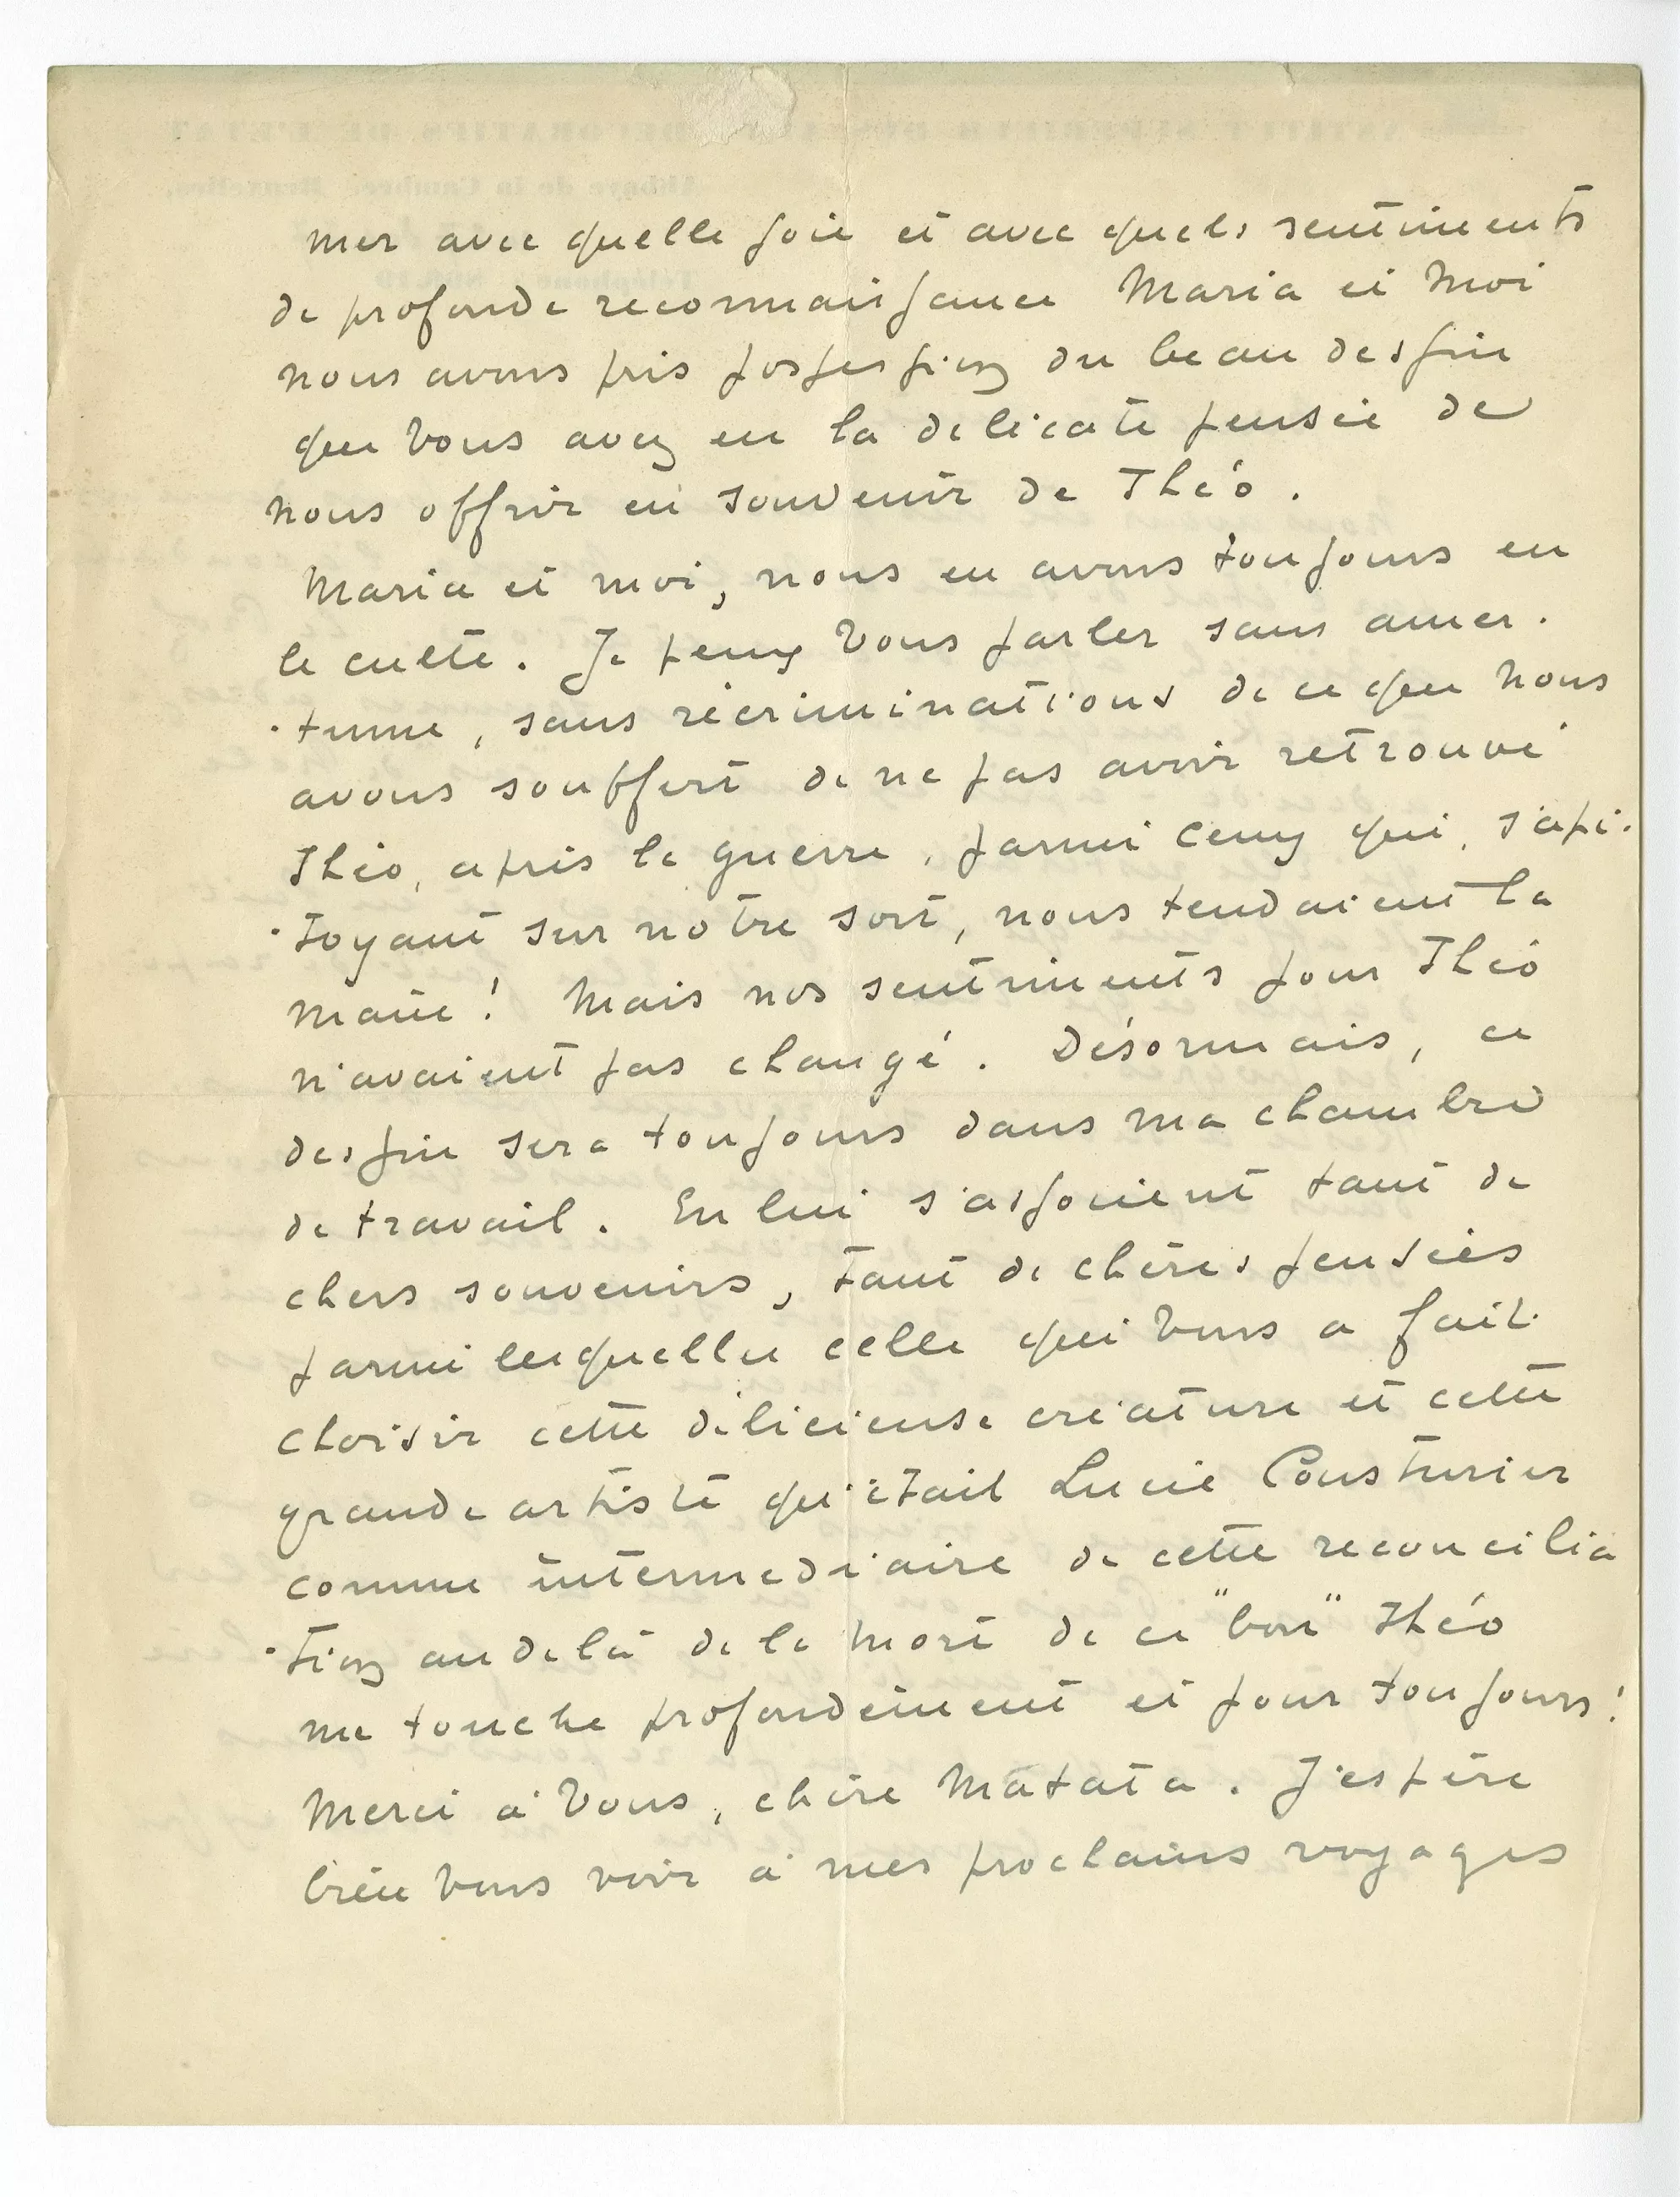 mer avec quelle joie et avec quels sentiments
de profonde reconnaissance Maria et moi
nous avons pris possession du beau dessin
que vous avez eu la delicate pensée de
nous offrir en souvenir de Théo.
Maria et moi, nous en avons toujours eu
le culte. Je peux vous parler sans amer-
-tume, sans récriminations de ce que nous
avons souffert de ne pas avoir retrouvé
Théo, après la guerre, parmi ceux qui, s'api-
-toyant sur notre sort, nous tendaient la
main! Mais nos sentiments pour Théo
n'avaient pas changé. Désormais, ce
dessin sera toujours dans ma chambre
de travail. En lui s'associent tant de
chers souvenirs, tant de chères pensées
parmi lesquelles celle qui vous a fait
choisir cette délicieuse créature et cette
grande artiste qu'était Lucie Cousturier
comme intermediaire de cette reconcilia
-tion au delà de la mort de ce "bon" Théo
me touche profondément et pour toujours!
Merci à vous, chère Matata. J'espère
bien vous voir à mes prochains voyages